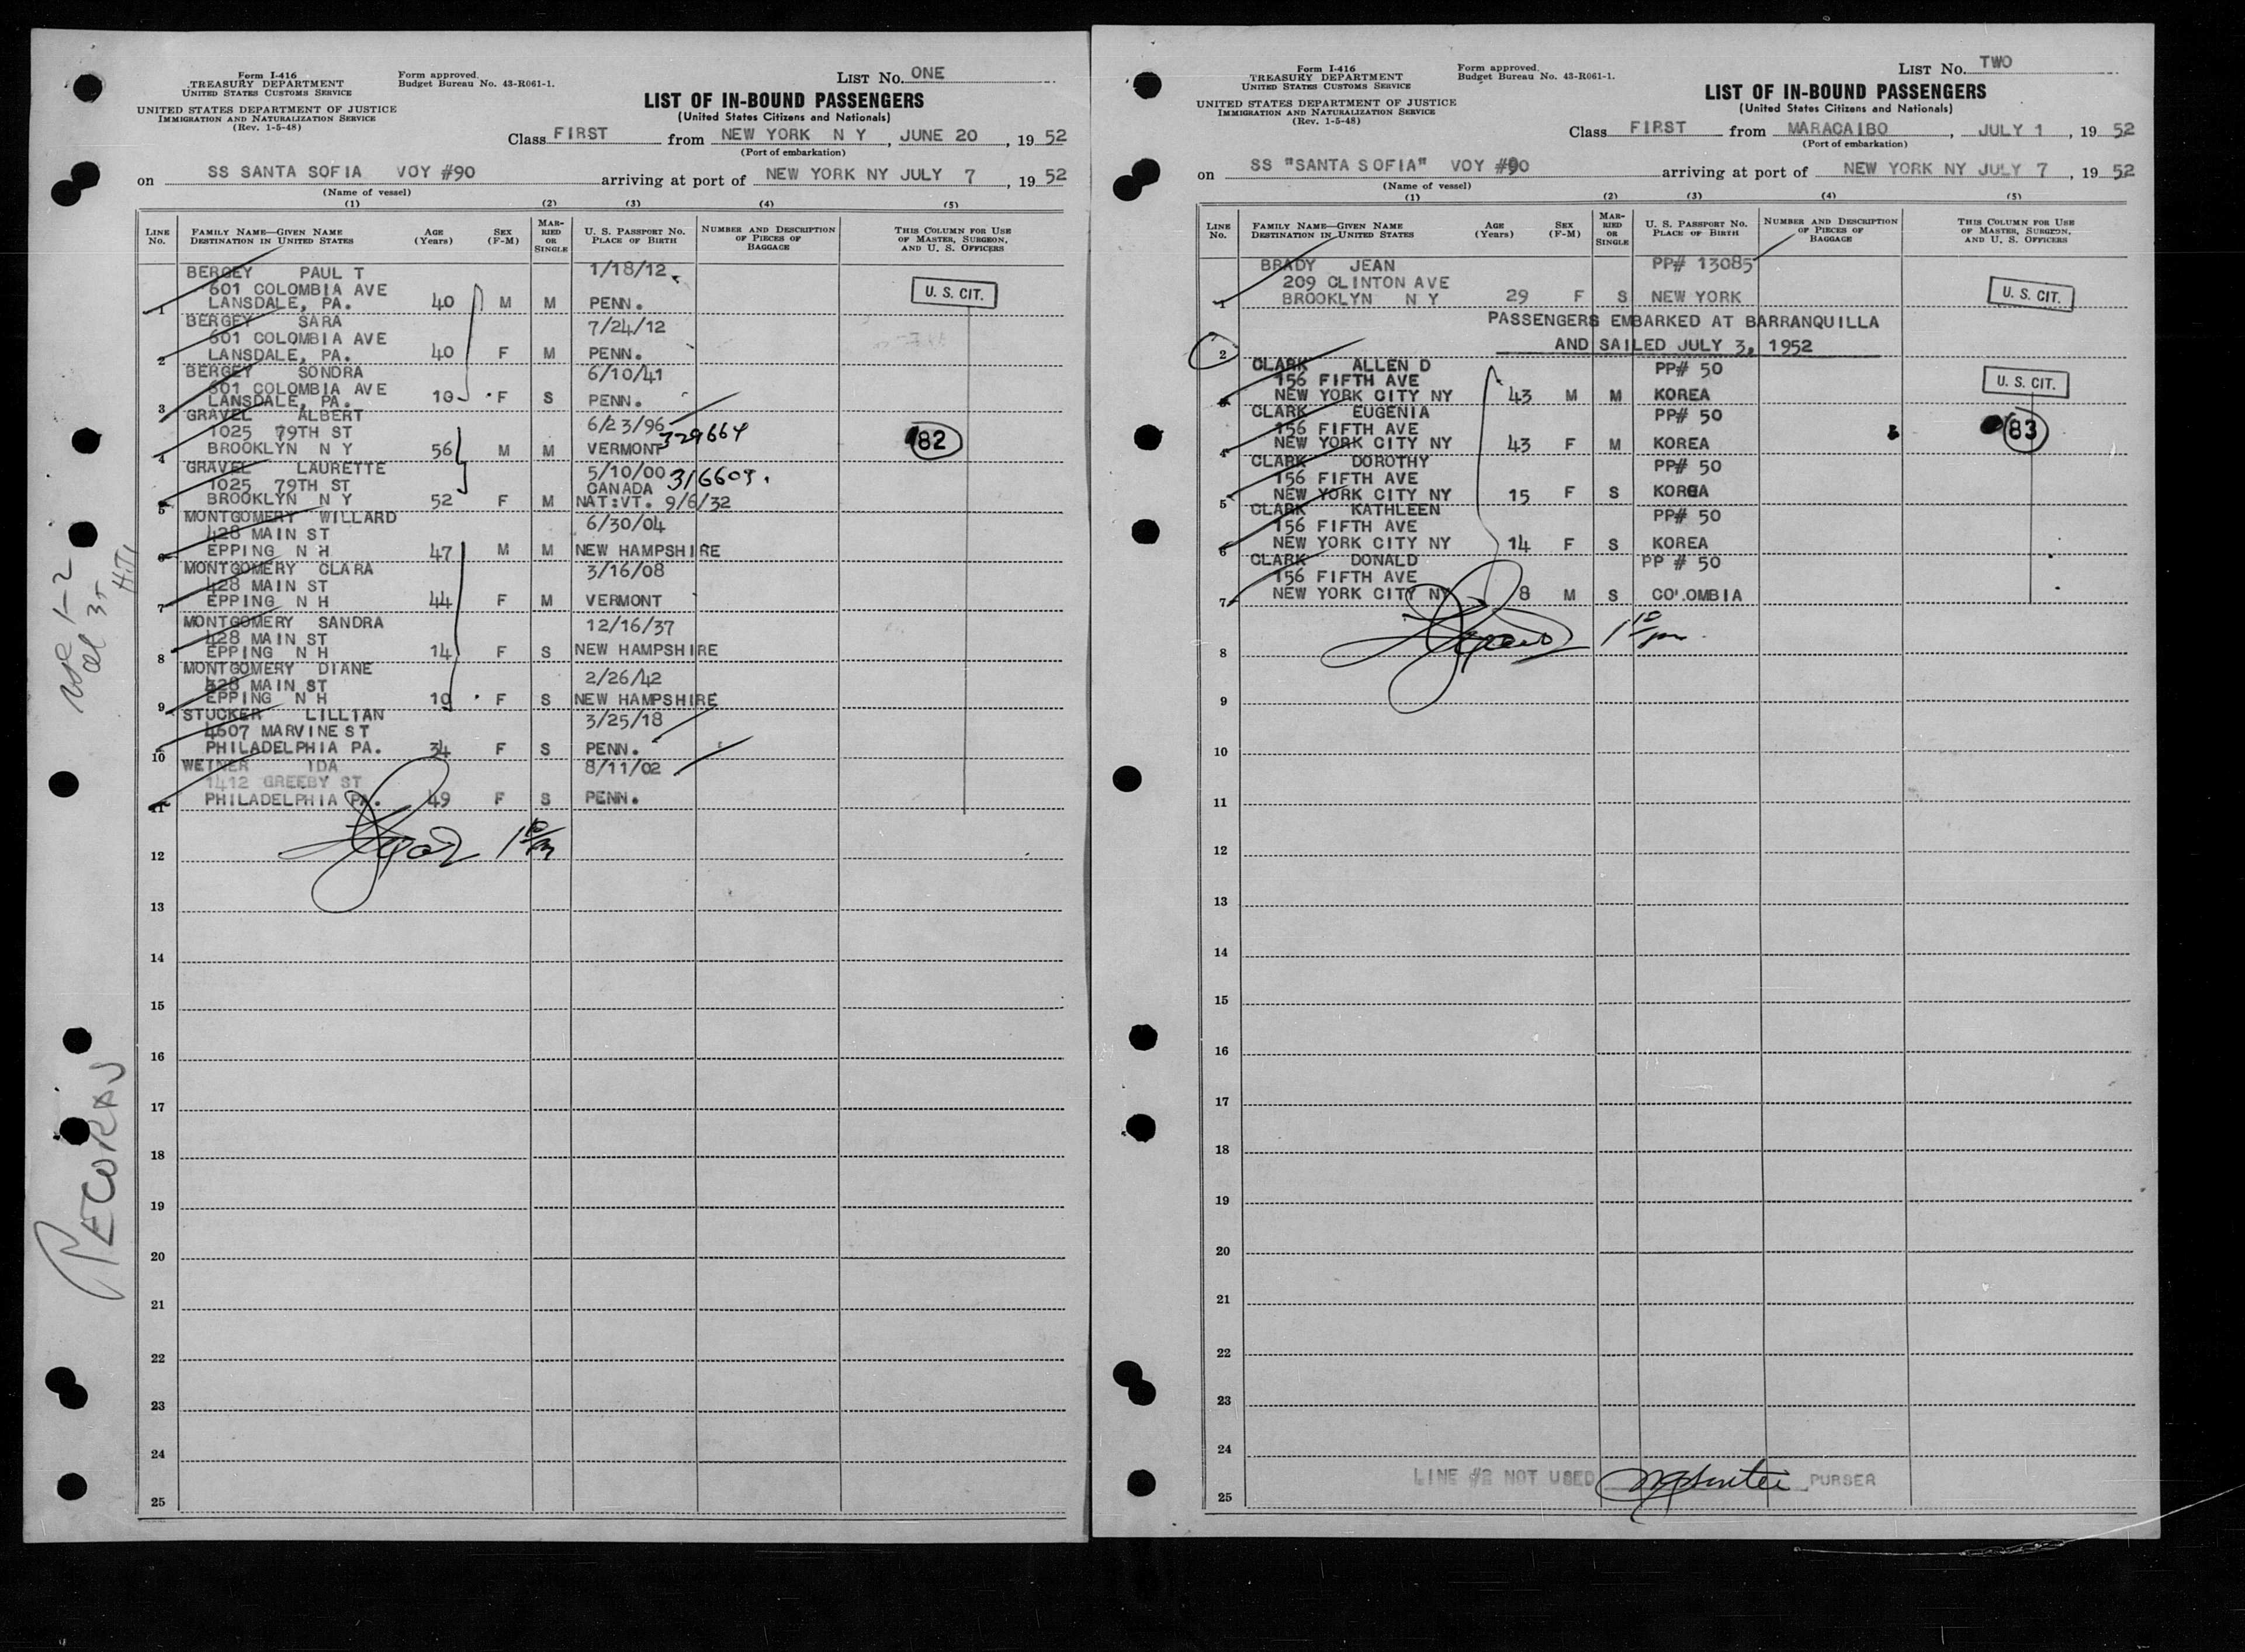 Form I-416
TREASURY DEPARTMENT
UNITED STATES CUSTOMS SERVICE
UNITED STATES DEPARTMENT OF JUSTICE
IMMIGRATION AND NATURALIZATION SERVICE
(Rev. 1-5-48)
Form approved.
Budget Bureau No. 43-R061-1.
LIST NO. ONE
LIST OF IN-BOUND PASSENGERS
(United States Citizens and Nationals)
Class FIRST from NEW YORK N Y, JUNE 20, 1952
(Port of embarkation)
on SS SANTA SOFIA VOY #90 arriving at port of NEW YORK NY JULY 7, 1952
(Name of vessel)
(1) (2) (3) (4) (5)
LINE No. FAMILY NAME—GIVEN NAME DESTINATION IN UNITED STATES AGE (Years) SEX (F-M) MARRIED OR SINGLE U. S. PASSPORT NO. PLACE OF BIRTH NUMBER AND DESCRIPTION OF PIECES OF BAGGAGE THIS COLUMN FOR USE OF MASTER, SURGEON, AND U. S. OFFICERS
BERGEY PAUL T 1/18/12
601 COLOMBIA AVE U. S. CIT.
1 LANSDALE, PA. 40 M M PENN.
BERGEY SARA 7/24/12
601 COLOMBIA AVE
2 LANSDALE, PA. 40 F M PENN.
BERGEY SONDRA 6/10/41
601 COLOMBIA AVE
3 LANSDALE, PA. 10 F S PENN.
GRAVEL ALBERT 6/23/96
1025 79TH ST 329664 82
4 BROOKLYN N Y 56 M M VERMONT
GRAVEL LAURETTE 5/10/00
1025 79TH ST CANADA
5 BROOKLYN N Y 52 F M NAT:VT. 9/6/32
MONTGOMERY WILLARD 6/30/04
428 MAIN ST
6 EPPING N H 47 M M NEW HAMPSHIRE
MONTGOMERY CLARA 3/16/08
428 MAIN ST
7 EPPING N H 44 F M VERMONT
MONTGOMERY SANDRA 12/16/37
428 MAIN ST
8 EPPING N H 14 F S NEW HAMPSHIRE
MONTGOMERY DIANE 2/26/42
428 MAIN ST
9 EPPING N H 10 F S NEW HAMPSHIRE
STUCKER LILLIAN 3/25/18
4607 MARVINE ST
10 PHILADELPHIA PA. 34 F S PENN.
WEINER IDA 8/11/02
1412 GREEBY ST
11 PHILADELPHIA PA. 49 F S PENN.
12
13
14
15
16
17
18
19
20
21
22
23
24
25
Form I-416
TREASURY DEPARTMENT
UNITED STATES CUSTOMS SERVICE
UNITED STATES DEPARTMENT OF JUSTICE
IMMIGRATION AND NATURALIZATION SERVICE
(Rev. 1-5-48)
Form approved.
Budget Bureau No. 43-R061-1.
LIST NO. TWO
LIST OF IN-BOUND PASSENGERS
(United States Citizens and Nationals)
Class FIRST from MARACAIBO, JULY 1, 1952
(Port of embarkation)
on SS "SANTA SOFIA" VOY #90 arriving at port of NEW YORK NY JULY 7, 1952
(Name of vessel)
(1) (2) (3) (4) (5)
LINE No. FAMILY NAME—GIVEN NAME DESTINATION IN UNITED STATES AGE (Years) SEX (F-M) MARRIED OR SINGLE U. S. PASSPORT NO. PLACE OF BIRTH NUMBER AND DESCRIPTION OF PIECES OF BAGGAGE THIS COLUMN FOR USE OF MASTER, SURGEON, AND U. S. OFFICERS
BRADY JEAN PP# 13085
209 CLINTON AVE
1 BROOKLYN N Y 29 F S NEW YORK U. S. CIT.
PASSENGERS EMBARKED AT BARRANQUILLA
2 AND SAILED JULY 3, 1952
CLARK ALLEN D PP# 50
156 FIFTH AVE U. S. CIT.
3 NEW YORK CITY NY 43 M M KOREA
CLARK EUGENIA PP# 50
156 FIFTH AVE 83
4 NEW YORK CITY NY 43 F M KOREA
CLARK DOROTHY PP# 50
156 FIFTH AVE
5 NEW YORK CITY NY 15 F S KOREA
CLARK KATHLEEN PP# 50
156 FIFTH AVE
6 NEW YORK CITY NY 14 F S KOREA
CLARK DONALD PP # 50
156 FIFTH AVE
7 NEW YORK CITY NY 8 M S CO'.OMBIA
8
9
10
11
12
13
14
15
16
17
18
19
20
21
22
23
24
LINE #2 NOT USED PURSER
25